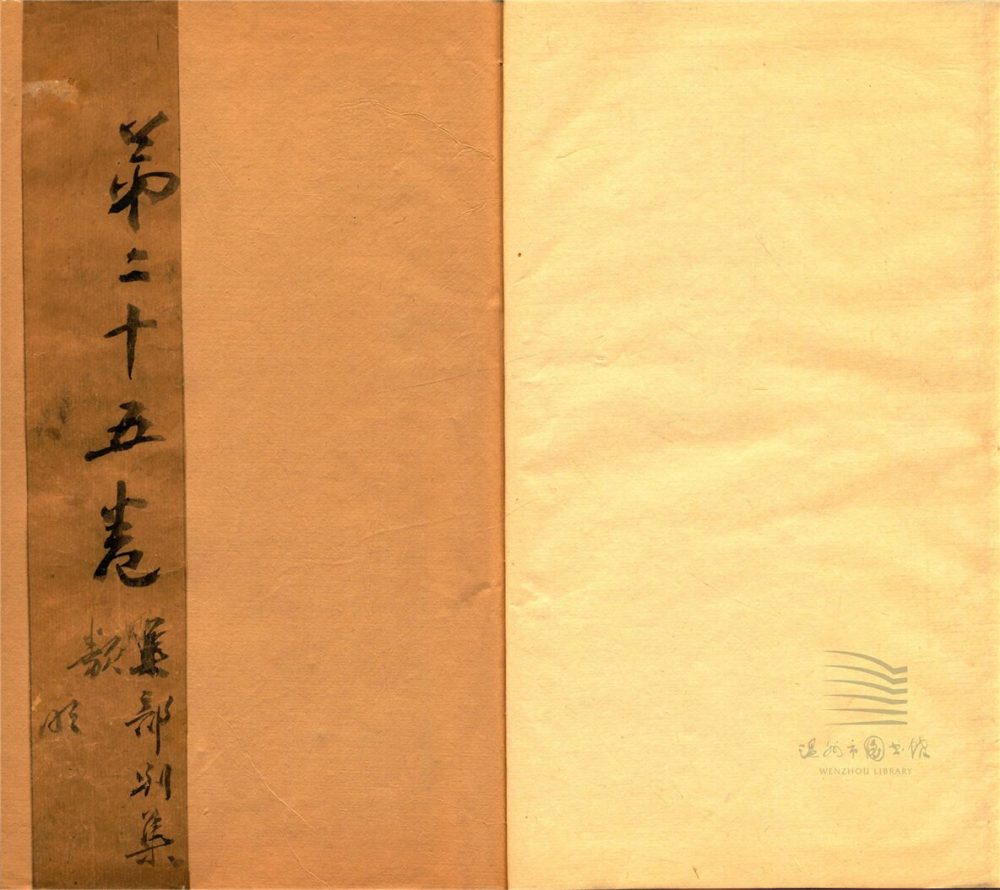 第二十五卷
集部別集
類
明
温州市图书馆
WENZHOU LIBRARY